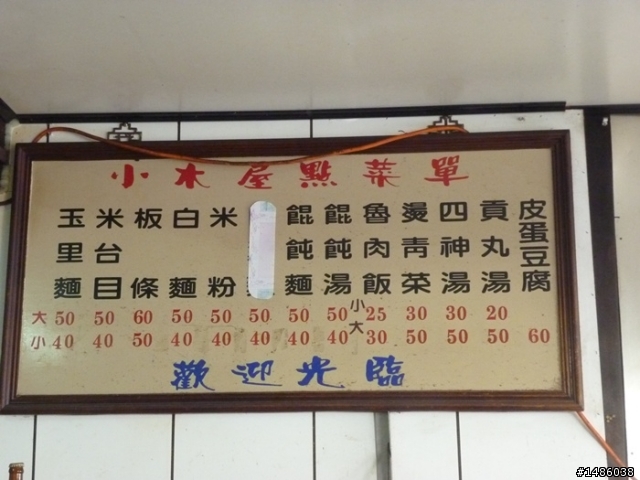 小木屋點菜單
玉里麵
米台目
板條
白麵
米粉
餛飩麵
餛飩湯
魯肉飯
燙青菜
四神湯
貢丸湯
皮蛋豆腐
大 50 50 60 50 50 50 50 50 小 25 30 30 20
小 40 40 50 40 40 40 40 40 大 30 50 50 50 60
歡迎光臨
#1486038